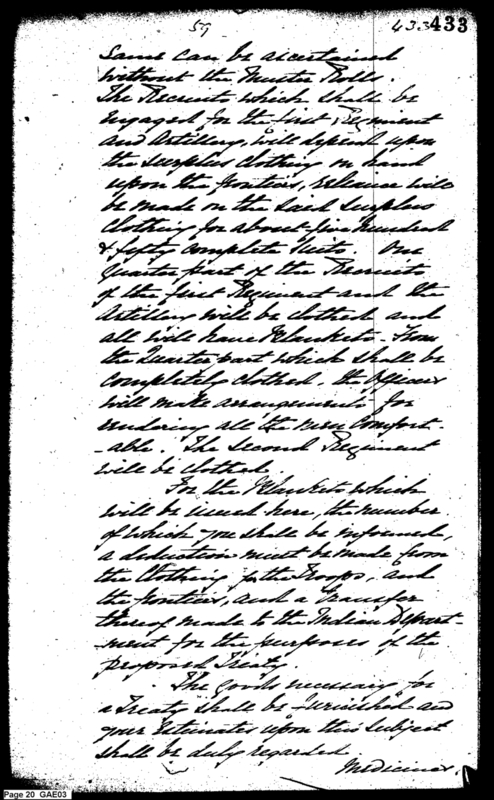 59 433 433
same can be ascertained
without the Muster Rolls.
The Recruits which shall be
engaged for the first Regiment
and Artillery, will depend upon
the surplus clothing on hand
upon the frontiers, reliance will
be made on the said surplus
clothing for about five hundred
& fifty complete suits. One
quarter part of the Recruits
of the first Regiment and the
Artillery will be clothed and
all will have Blankets - From
the Quarter part which shall be
completely clothed, the Officers
will make arrangements for
rendering all the men comfort-
-able. The second Regiment
will be clothed.
For the Blankets which
will be issued here, the number
of which you shall be informed,
a deduction must be made from
the Clothing for the Troops, and
the frontiers, and a transfer
thereof made to the Indian Depart-
-ment for the purposes of the
proposed Treaty.
The goods necessary for
a Treaty shall be furnished and
your Estimates upon this subject
shall be duly regarded.
Medicines.
Page 20 GAE03